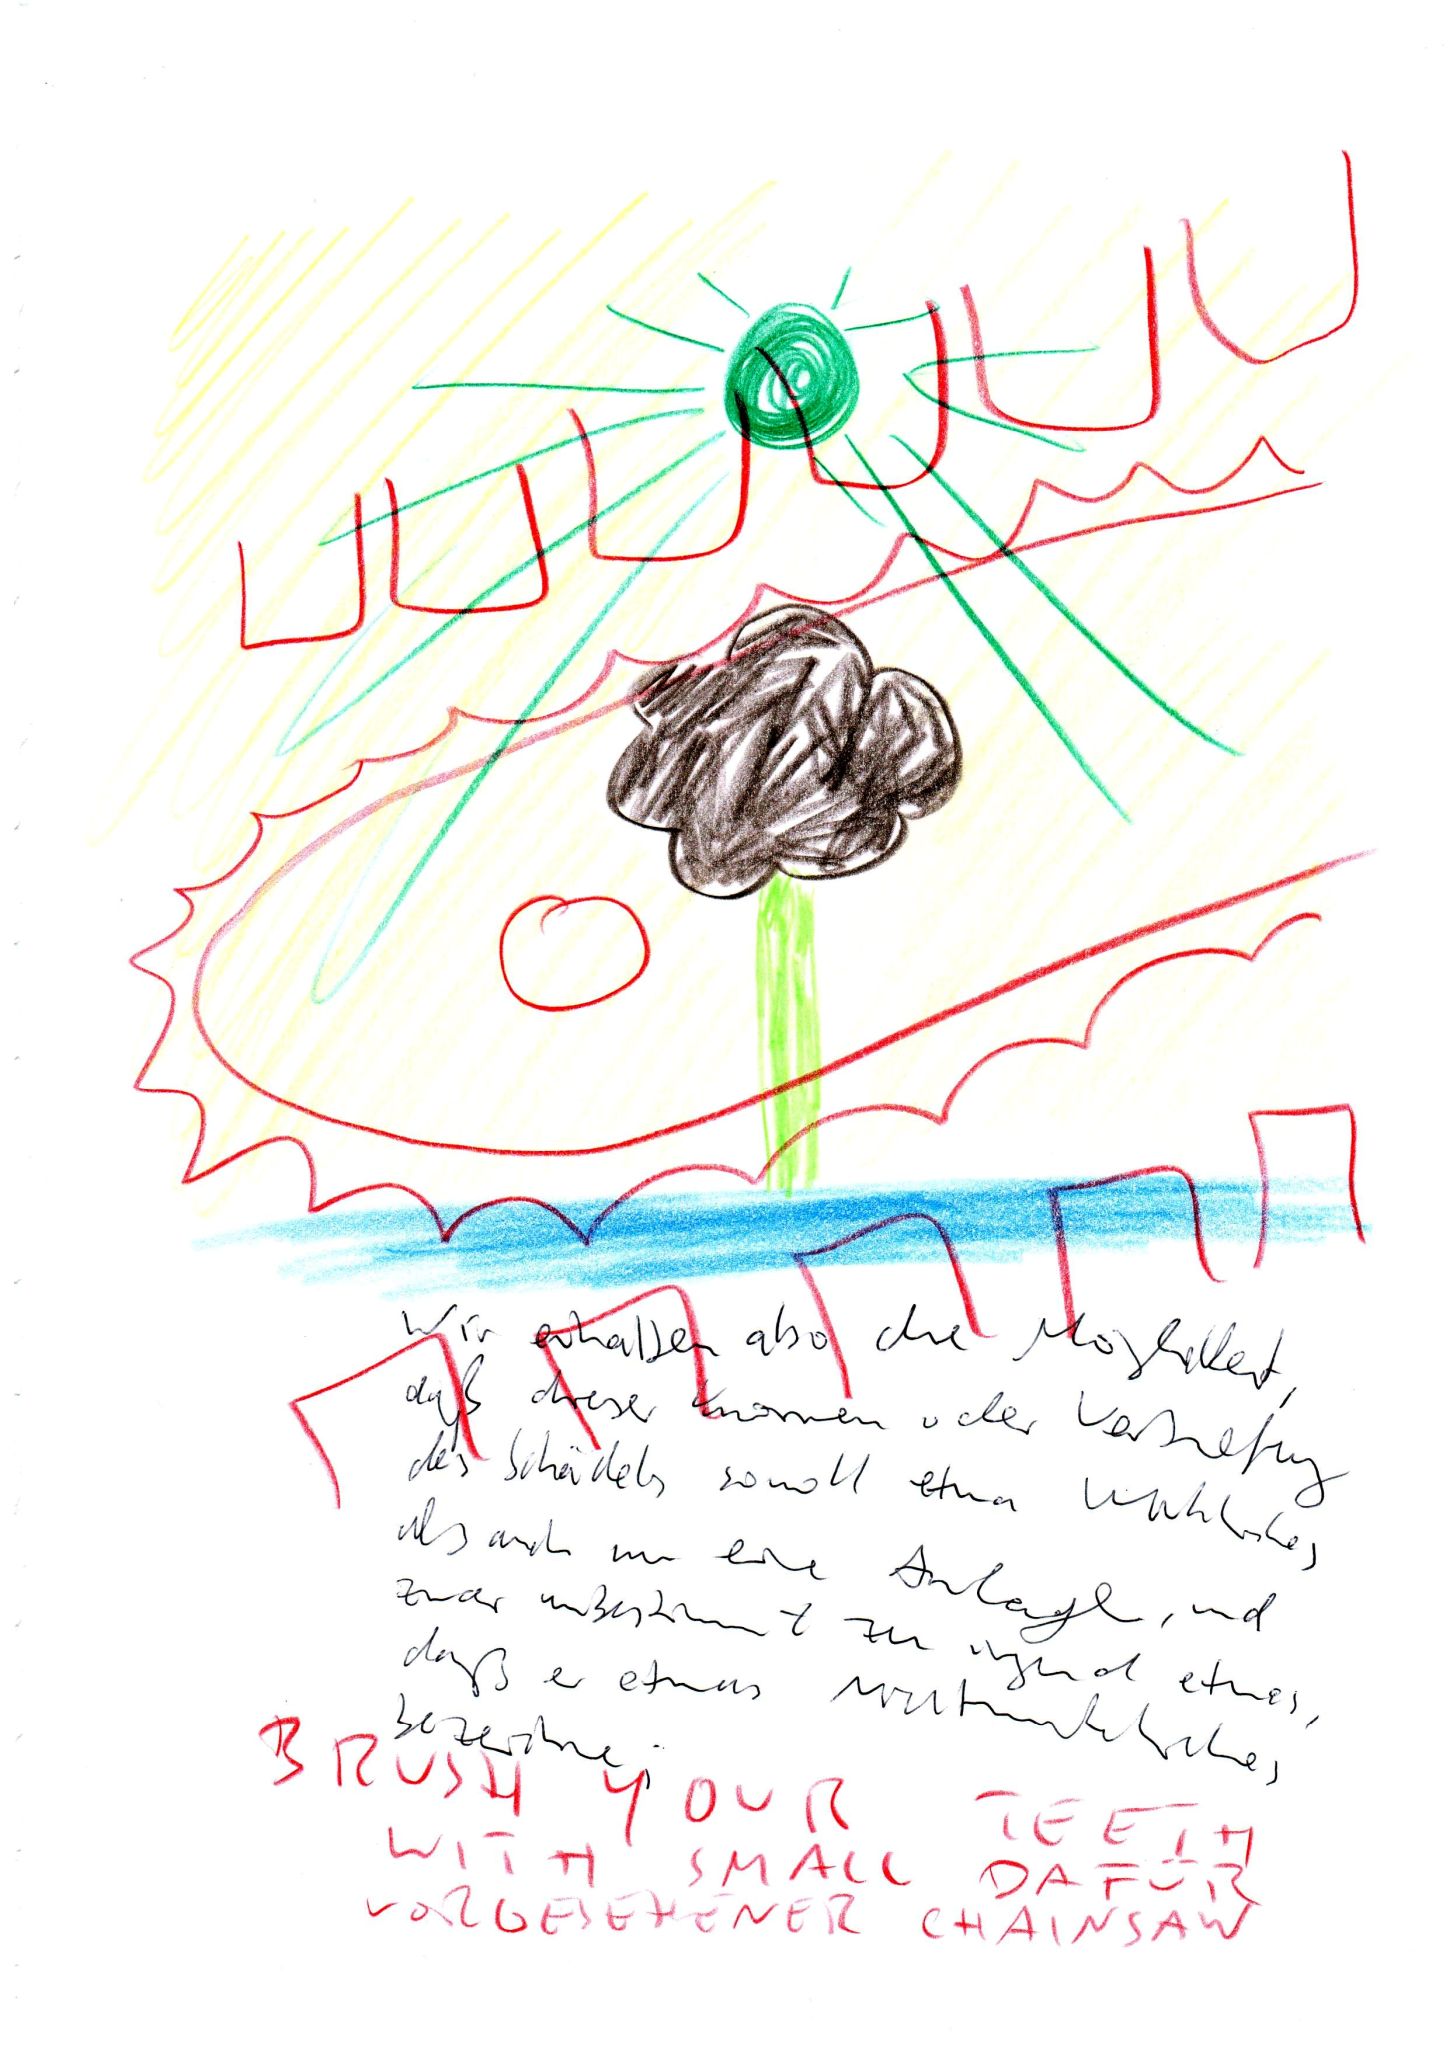 Wir erhalten also die Möglichkeit,
daß dieser Knorren oder Vertiefung
des Schädels sowohl etwa Wirkliches,
als auch nur eine Anlage, und
zwar unbestimmt zu irgend etwas,
daß er etwas Nichtwirkliches
bezeichne;
BRUSH YOUR TEETH
WITH SMALL DAFÜR
VORGESEHENER CHAINSAW